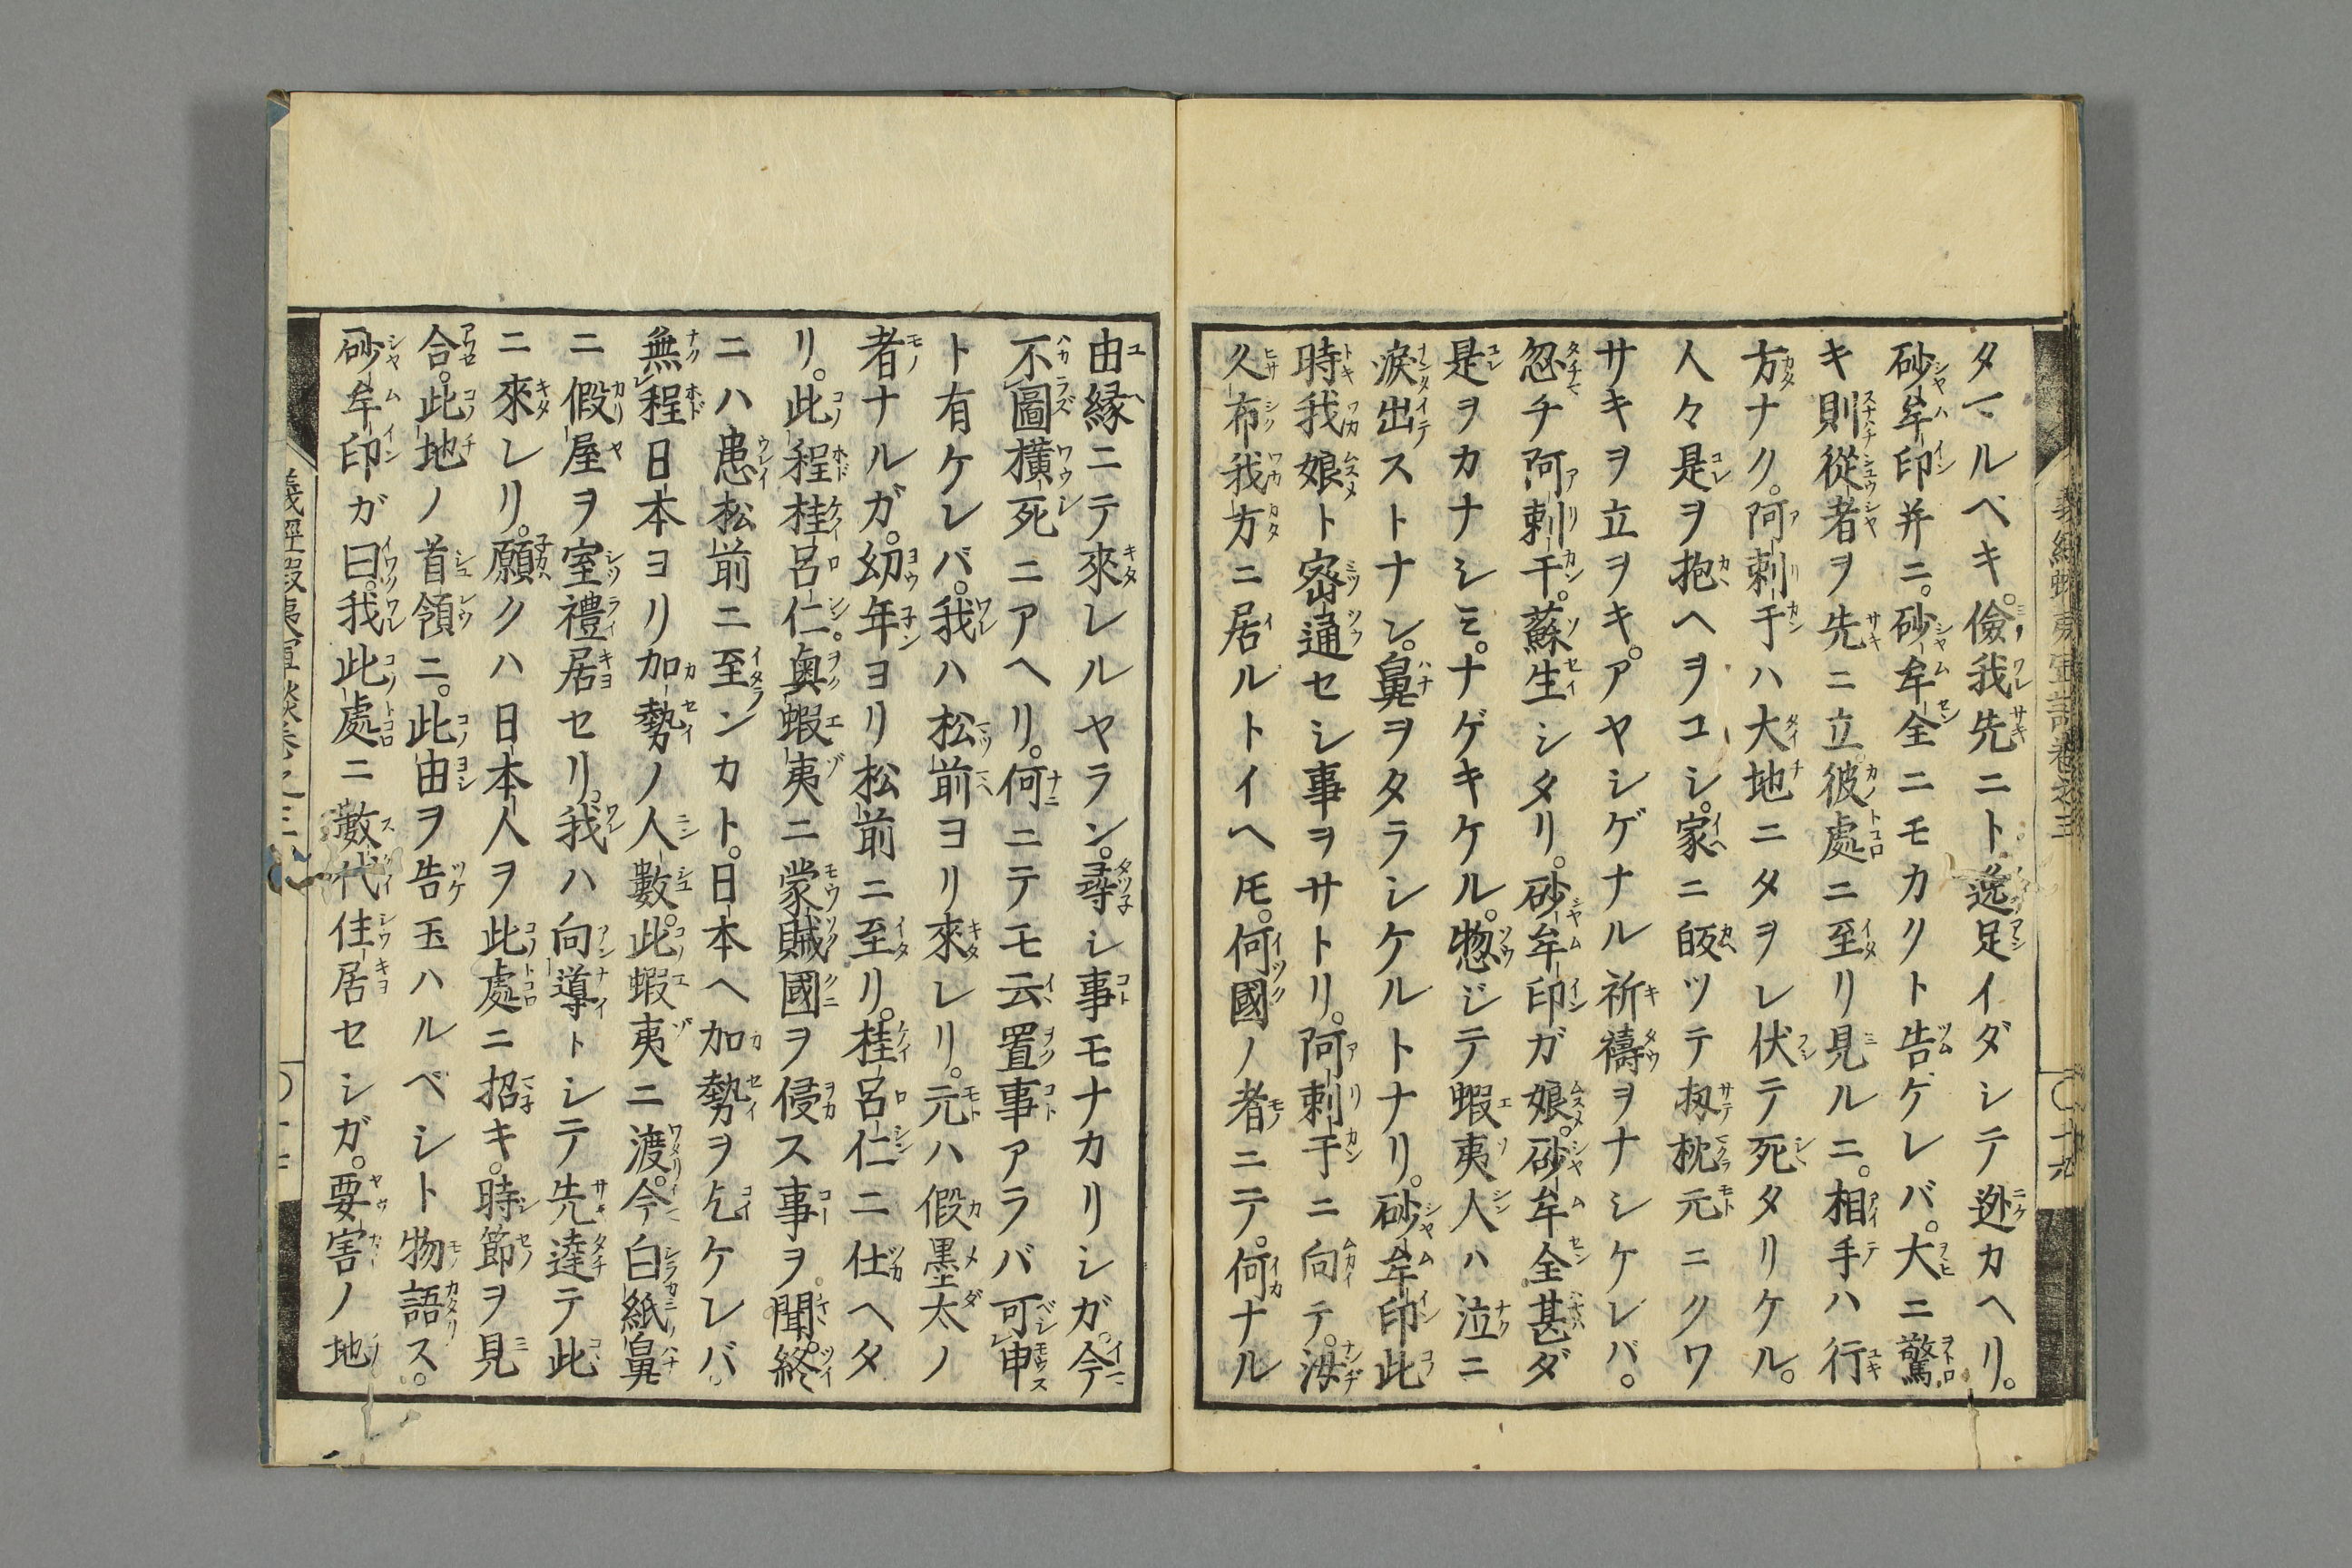 タマルベキ。儉我先ニト逸足イダシテ迯カヘリ。
砂牟印并ニ。砂牟全ニモカクト告ケレバ。大ニ驚
キ則從者ヲ先ニ立彼處ニ至リ見ルニ。相手ハ行
方ナク。阿剌干ハ大地ニタヲレ伏テ死タリケル。
人々是ヲ抱ヘヲコシ。家ニ皈ツテ扨枕元ニクワ
サキヲ立ヲキ。アヤシゲナル祈禱ヲナシケレバ。
忽チ阿剌干。蘇生シタリ。砂牟印ガ娘。砂牟全甚ダ
是ヲカナシミ。ナゲキケル。惣ジテ蝦夷人ハ泣ニ
淚出ストナシ。鼻ヲタラシケルトナリ。砂牟印此
時我娘ト密通セシ事ヲサトリ。阿剌干ニ向テ。汝
久布我方ニ居ルトイヘ𪜈。何國ノ者ニテ。何ナル
由縁ニテ來レルヤラン。尋シ事モナカリシガ。今
不圖橫死ニアヘリ。何ニテモ云置事アラバ可申
ト有ケレバ。我ハ松前ヨリ來レリ。元ハ假墨太ノ
者ナルガ。幼年ヨリ松前ニ至リ。桂呂仁ニ仕ヘタ
リ。此程桂呂仁。奥蝦夷ニ蒙賊國ヲ侵ス事ヲ聞。終
ニハ患松前ニ至ンカト。日本ヘ加勢ヲ乞ケレバ。
無程日本ヨリ加勢ノ人數。此蝦夷ニ渡。今白紙鼻
ニ假屋ヲ室禮居セリ。我ハ向導トシテ先達テ此
ニ來レリ。願クハ日本人ヲ此處ニ招キ。時節ヲ見
合。此地ノ首領ニ。此由ヲ告玉ハルベシト物語ス。
砂牟印ガ曰。我此處ニ數代住居セシガ。要害ノ地